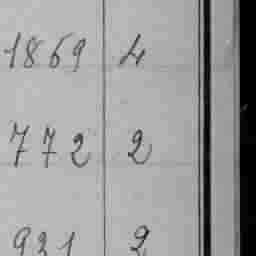 1869 4
772 2
931 2